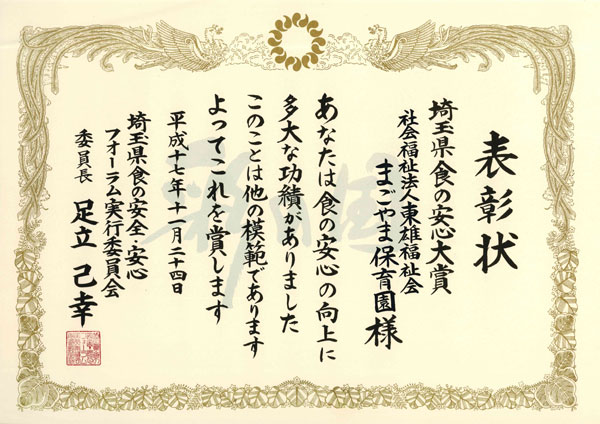 表彰状
埼玉県食の安心大賞
社会福祉法人東雄福祉会
まごやま保育園様
あなたは食の安心の向上に
多大な功績がありました
このことは他の模範であります
よってこれを賞します
平成十七年十一月二十四日
埼玉県食の安全・安心
フォーラム実行委員会
委員長 足立己幸